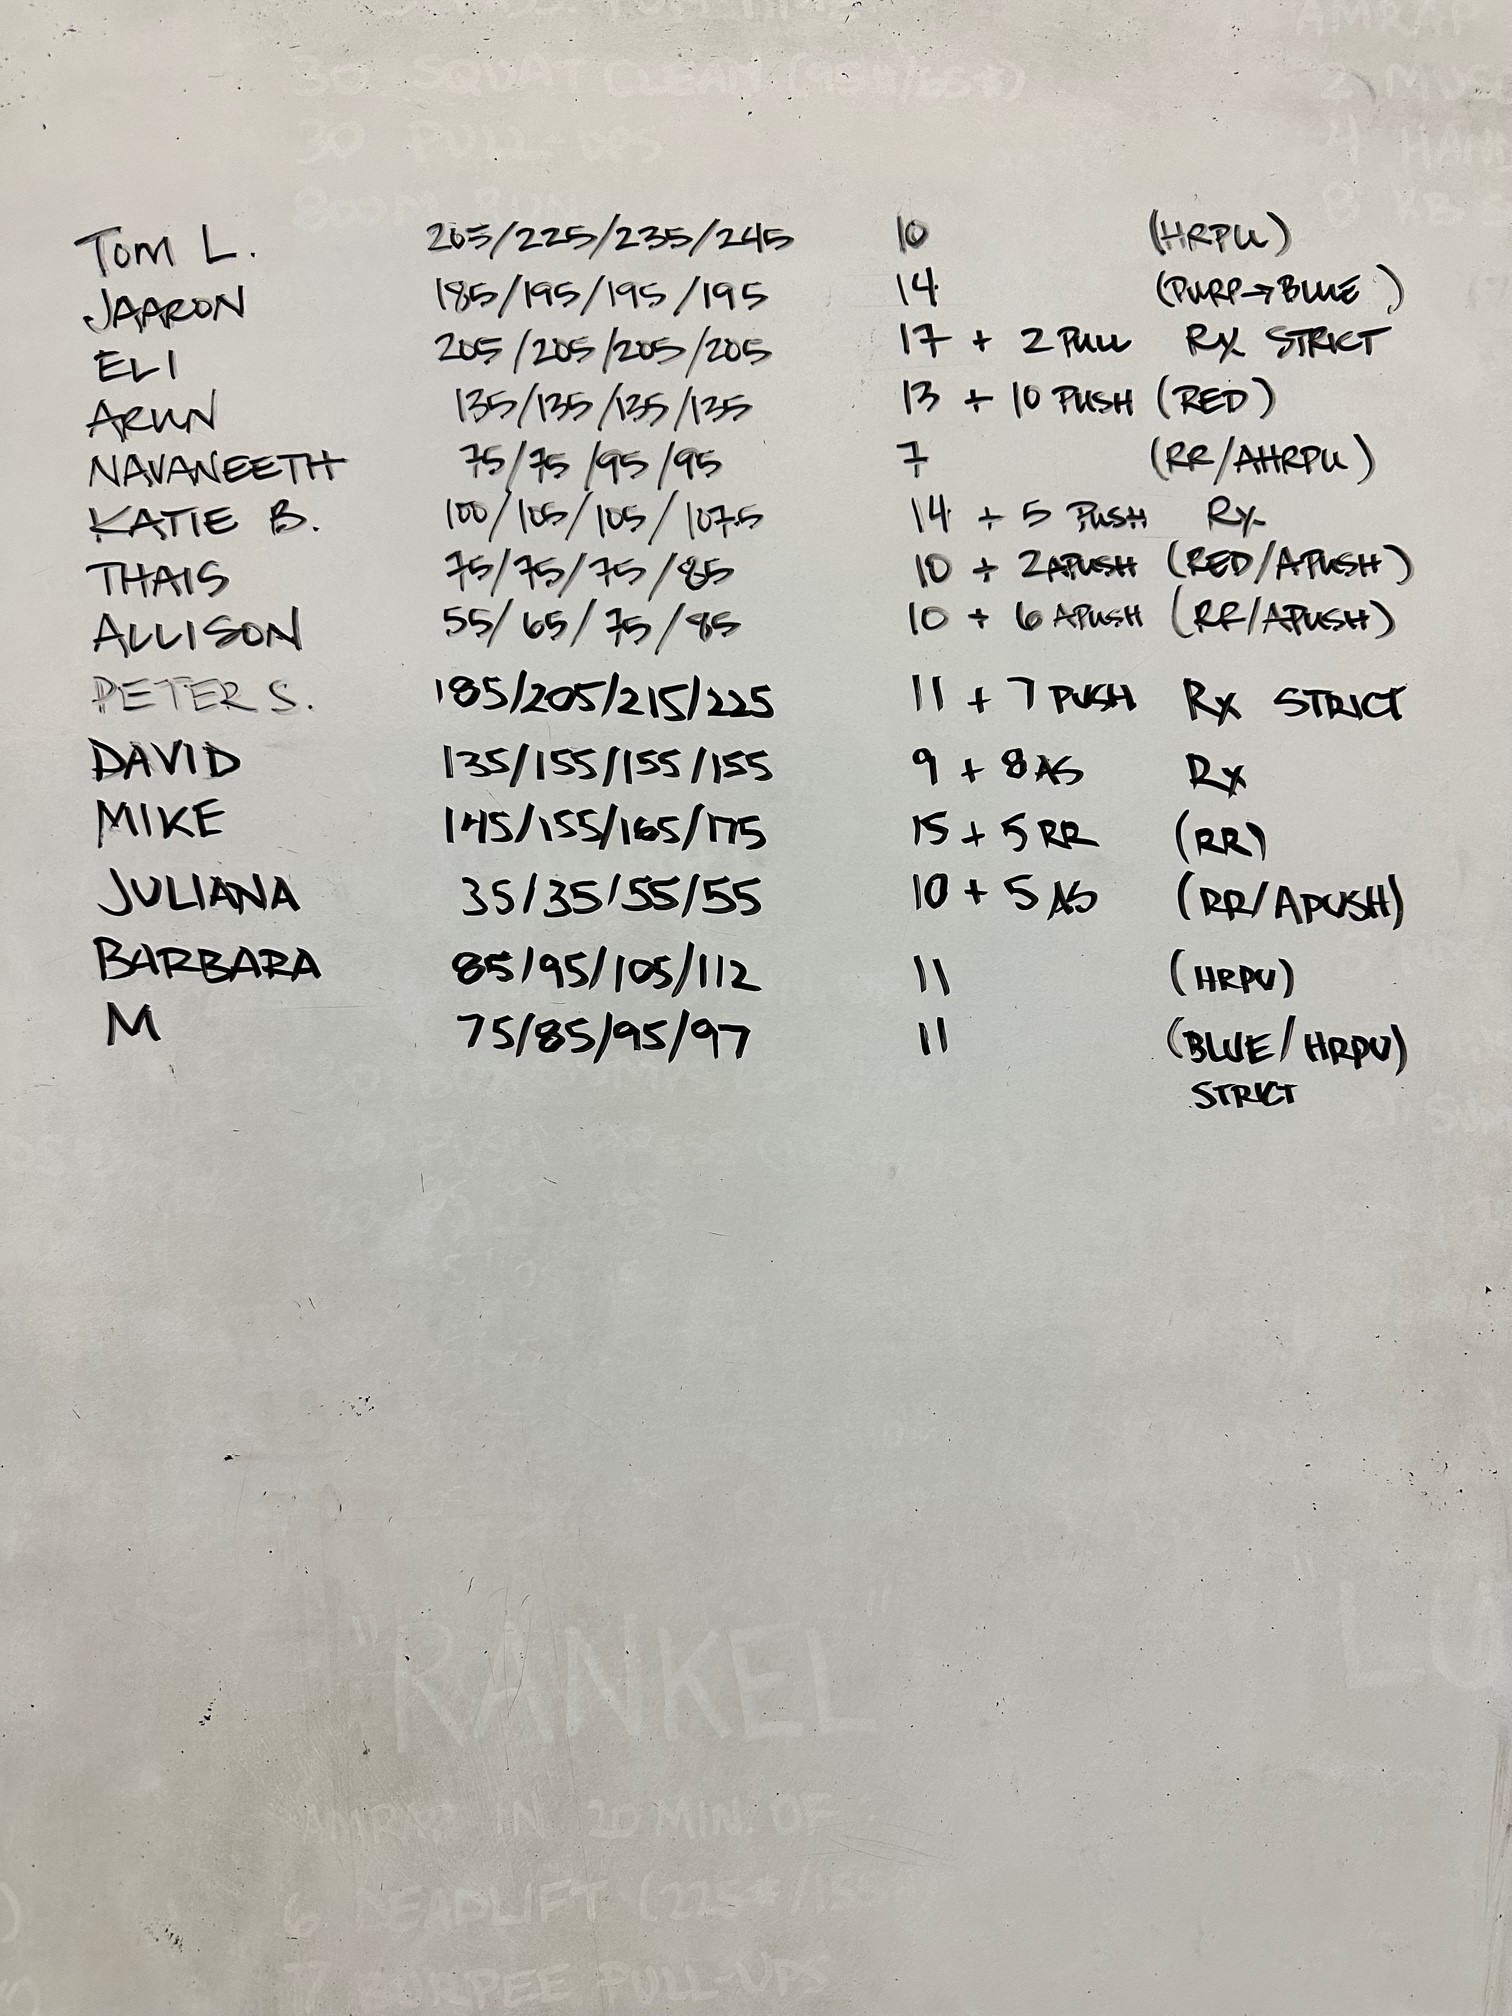 30 SQUAT CLEAN (95#/65#)
30 PULL-UPS
800M RUN
AMRAP
2 MUS
4 HAN
8 KB S
TOM L. 205/225/235/245 10 (HRPU)
JAARON 185/195/195/195 14 (PURP→BLUE)
ELI 205/205/205/205 17 + 2 PULL RX STRICT
ARUN 135/135/135/135 13 + 10 PUSH (RED)
NAVANEETH 75/75/95/95 7 (RR/AHRPU)
KATIE B. 100/105/105/107.5 14 + 5 PUSH RX
THAIS 75/75/75/85 10 + 2 APUSH (RED/APUSH)
ALLISON 55/65/75/85 10 + 6 APUSH (RR/APUSH)
PETER S. 185/205/215/225 11 + 7 PUSH Rx STRICT
DAVID 135/155/155/155 9 + 8 AS Rx
MIKE 145/155/165/175 15 + 5 RR (RR)
JULIANA 35/35/55/55 10 + 5 AS (RR/APUSH)
BARBARA 85/95/105/112 11 (HRPU)
M 75/85/95/97 11 (BLUE/HRPU)
STRICT
30 PUSH PRESS
"RANKEL"
"LU
AMRAP IN 20 MIN. OF:
6 DEADLIFT (225#/155#)
7 BURPEE PULL-UPS